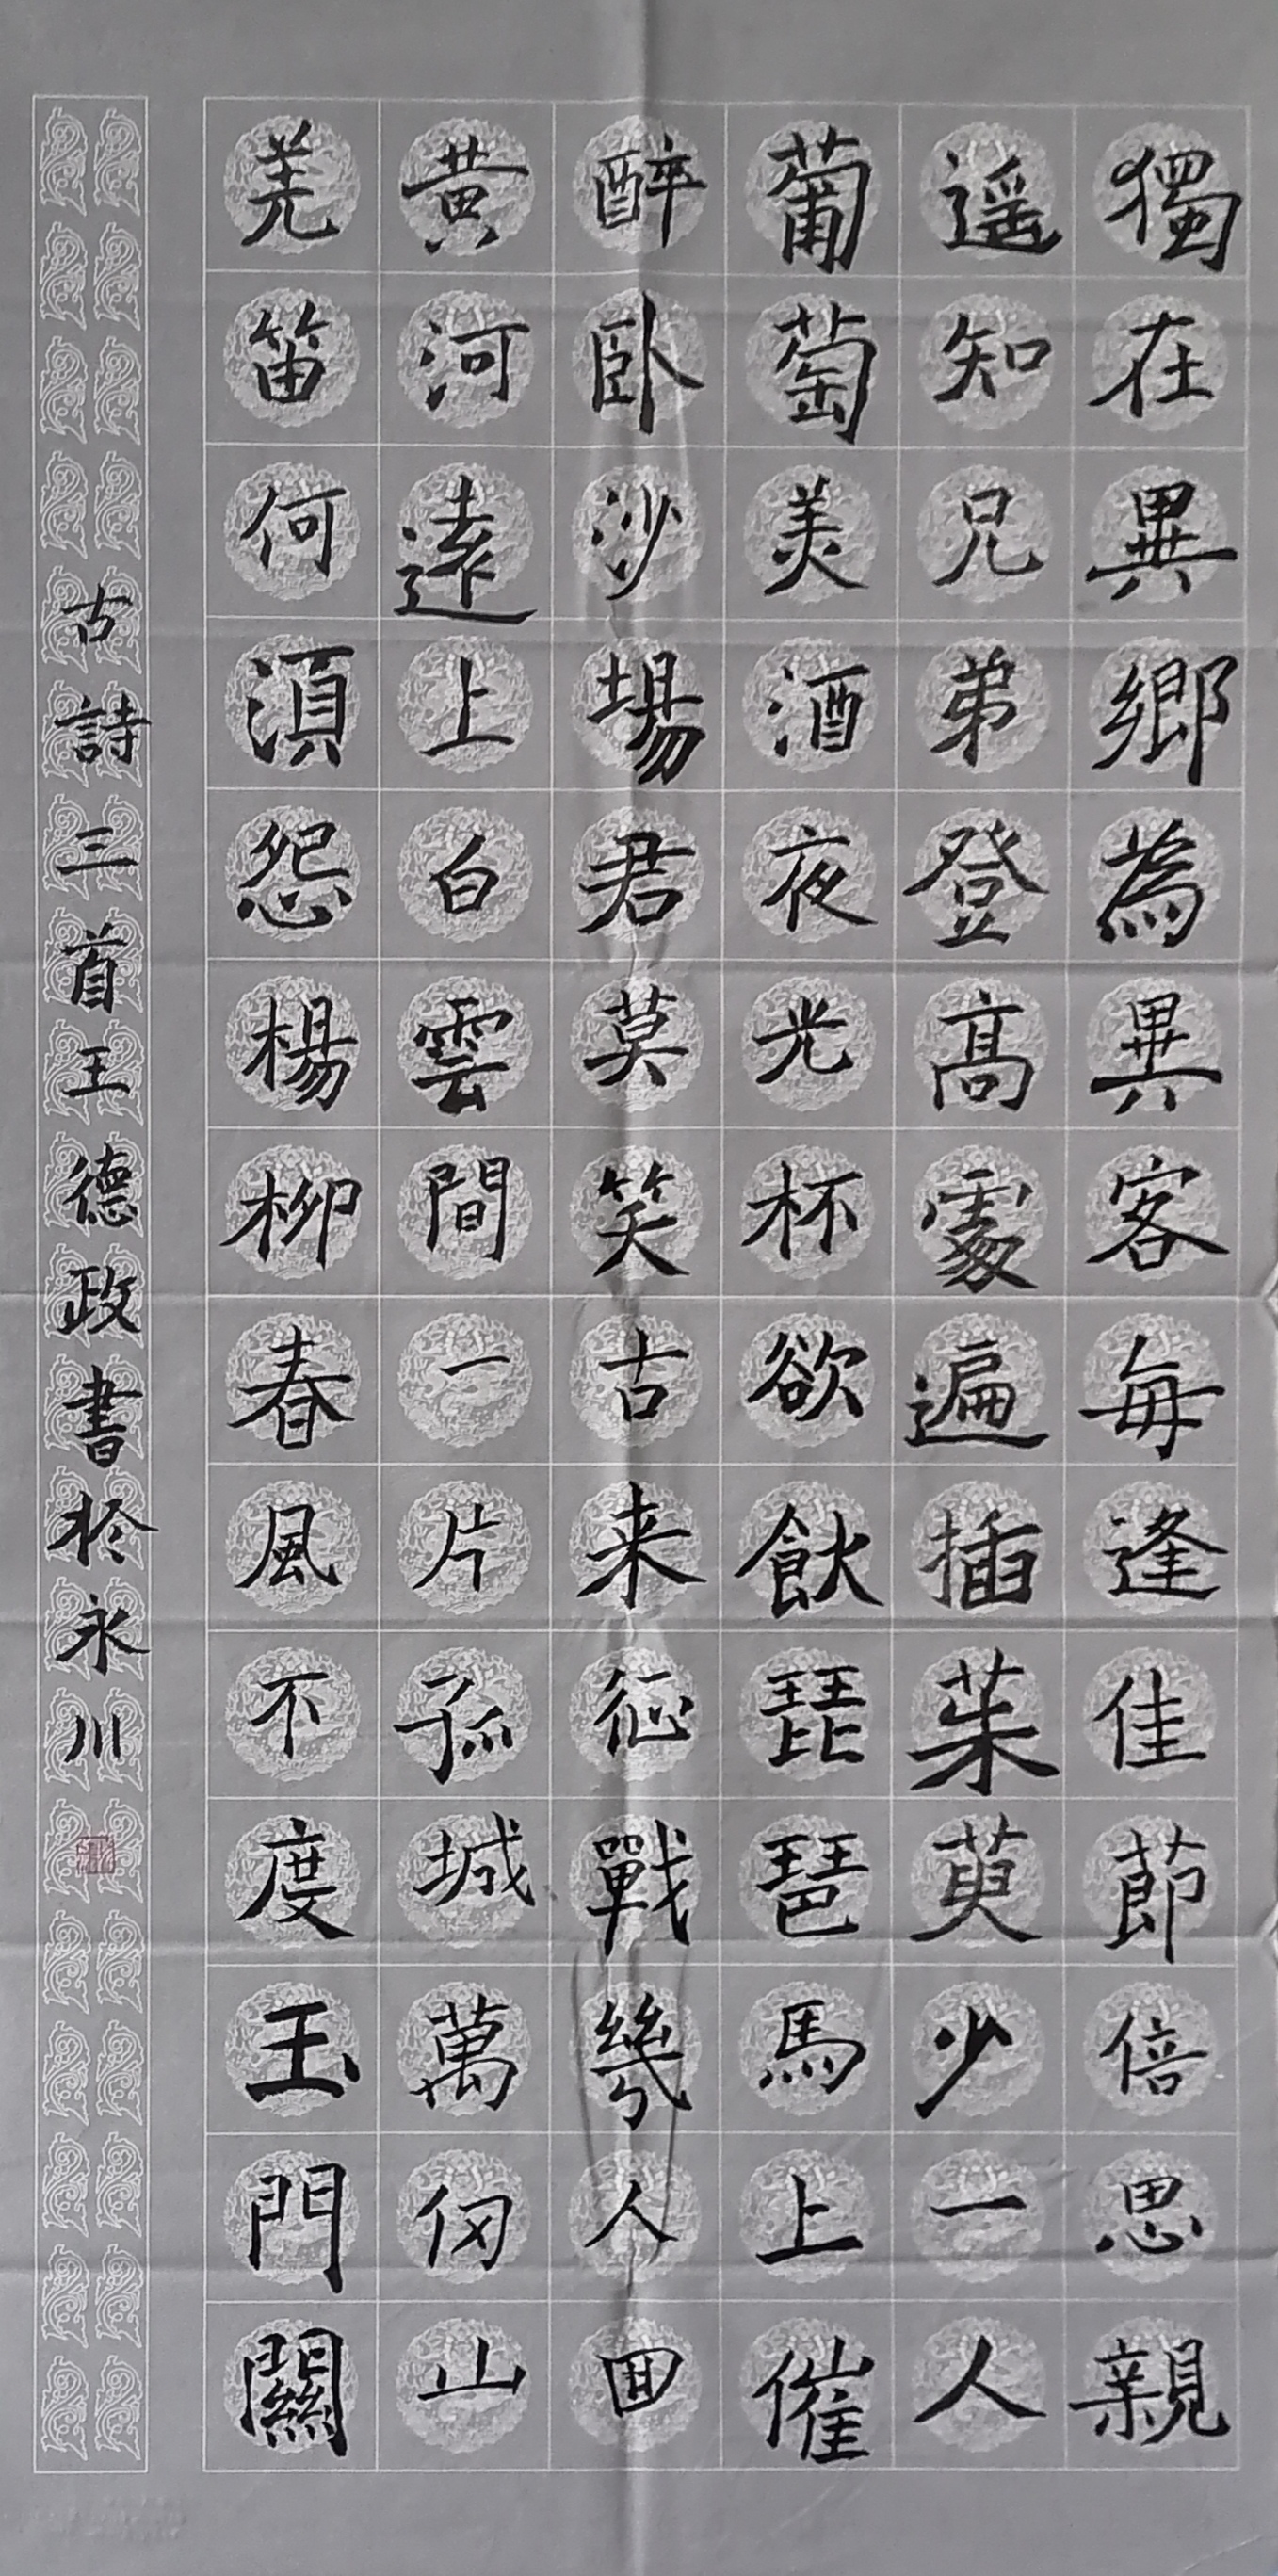 獨在異鄉為異客每逢佳節倍思親
遥知兄弟登髙處遍插茱萸少一人
葡萄美酒夜光杯欲飲琵琶馬上催
醉卧沙場君莫笑古来征戰幾人回
黄河遠上白雲間一片孤城萬仞山
羌笛何須怨楊柳春風不度玉門關
古詩三首王德政書於永川